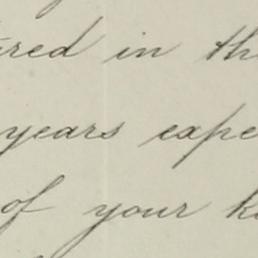 ured in th
years expe
of your k